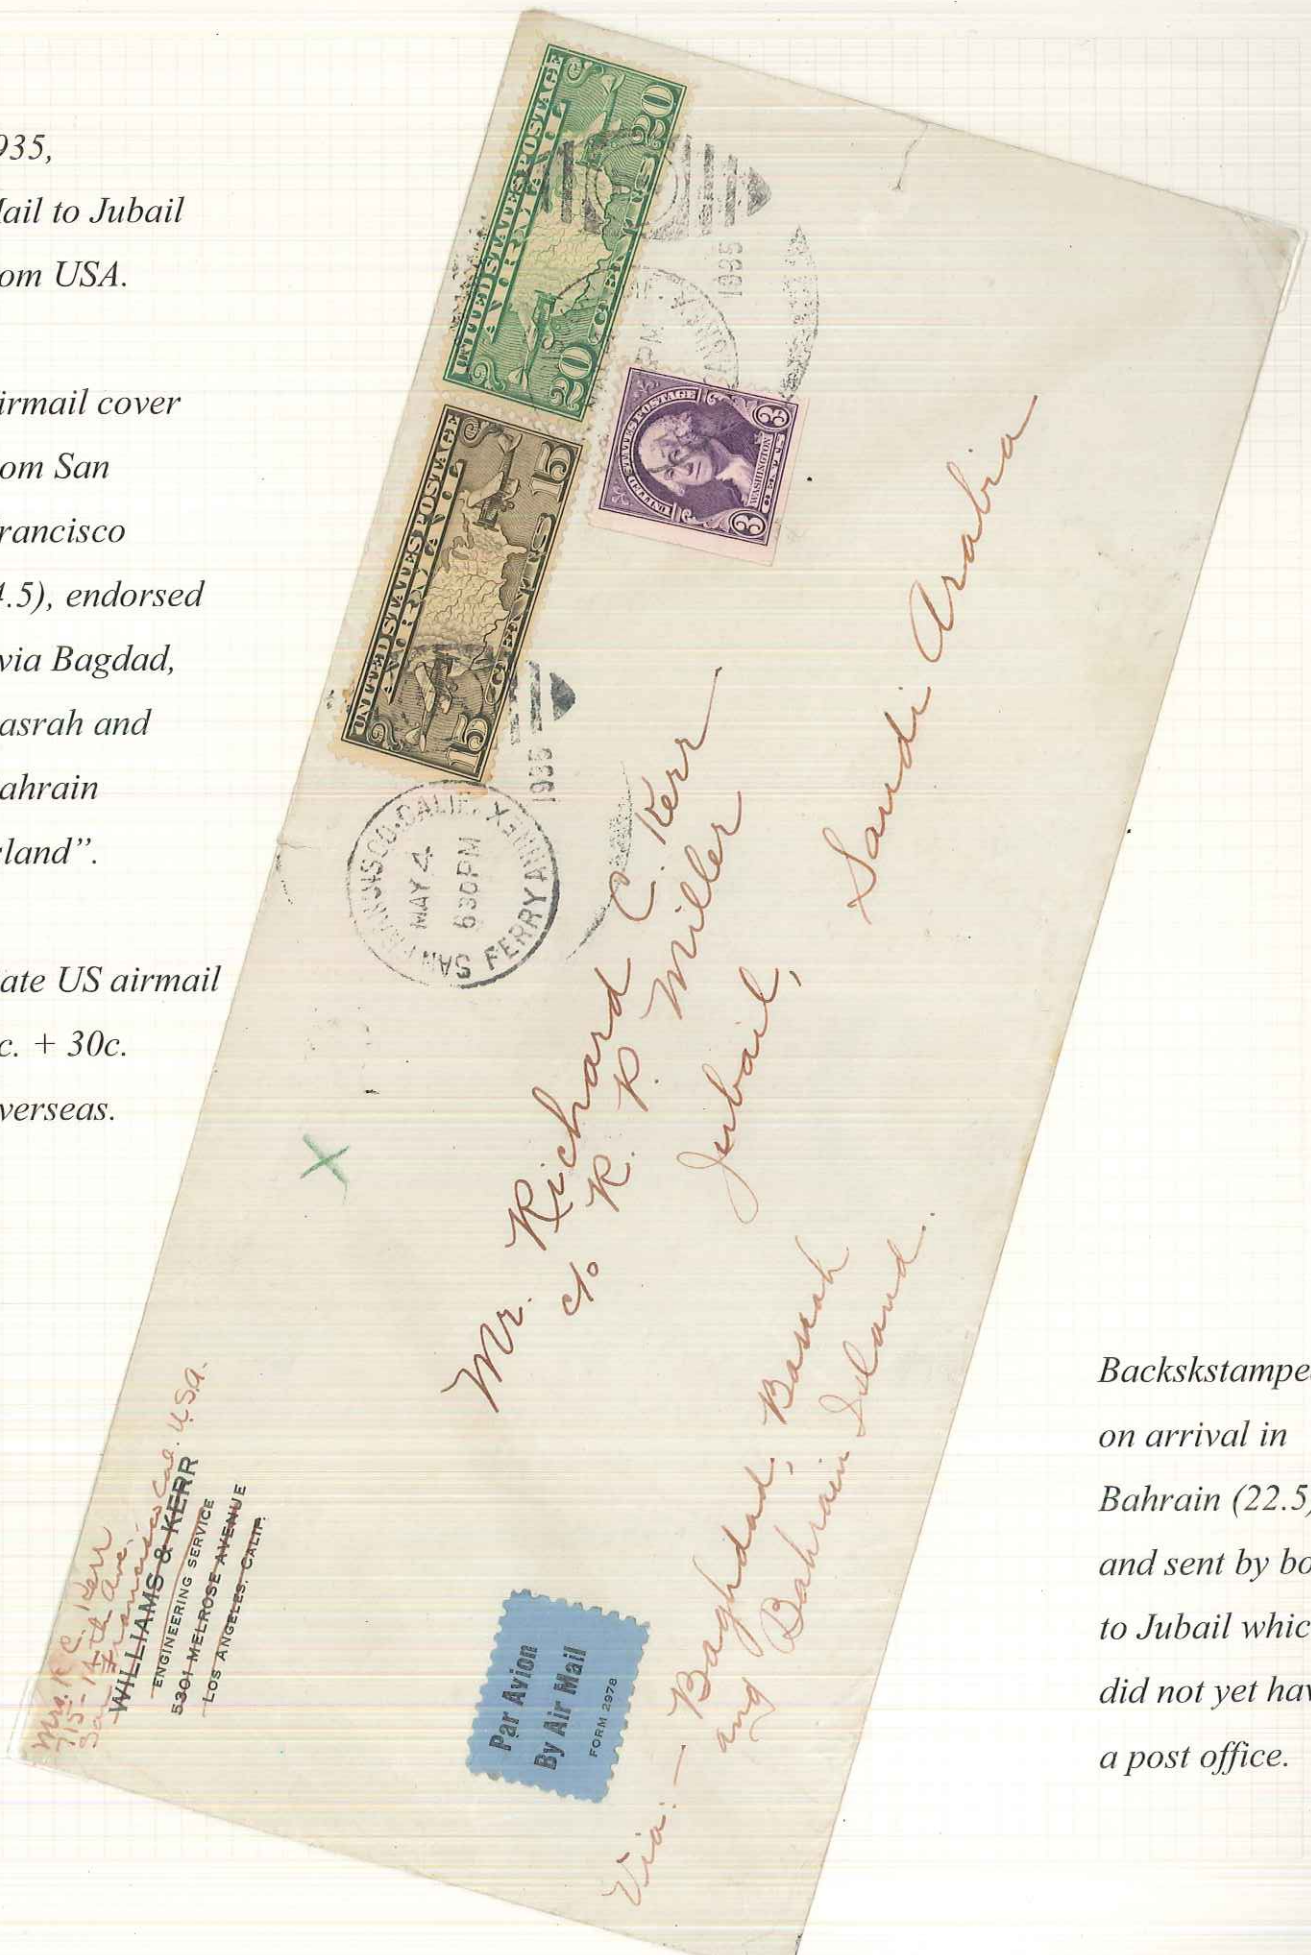 935,
ail to Jubail
om USA.
irmail cover
om San
rancisco
4.5), endorsed
via Bagdad,
asrah and
ahrain
land”.
ate US airmail
c. + 30c.
verseas.
UNITED STATES POSTAGE
AIR MAIL
20 CENTS 20
UNITED STATES POSTAGE
AIR MAIL
15 CENTS 15
UNITED STATES POSTAGE
WASHINGTON
3 3
PM
1935
1935
SAN FRANCISCO. CALIF.
MAY 4
630PM
FERRY ANNEX
X
Mr. Richard C. Kerr
c/o R. P. Miller
Jubail,
Saudi Arabia
Via:— Baghdad, Basrah
and Bahrain Island.
Mrs. R. C. Kerr
715-14th Ave.
San Francisco Cal. U.S.A.
WILLIAMS & KERR
ENGINEERING SERVICE
5301 MELROSE AVENUE
LOS ANGELES, CALIF.
Par Avion
By Air Mail
FORM 2978
Backskstampe
on arrival in
Bahrain (22.5)
and sent by bo
to Jubail whic
did not yet hav
a post office.